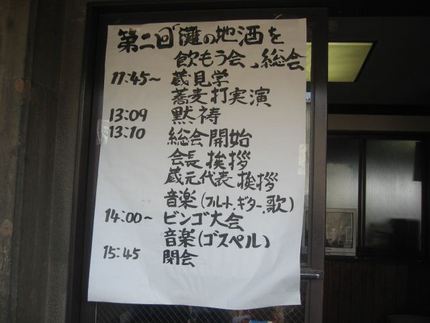 第二回「灘の地酒を
飲もう会」総会
11:45~ 蔵見学
蕎麦打実演
13:09 黙祷
13:10 総会開始
会長挨拶
蔵元代表挨拶
音楽(フルート.ギター.歌)
14:00~ ビンゴ大会
音楽(ゴスペル)
15:45 閉会